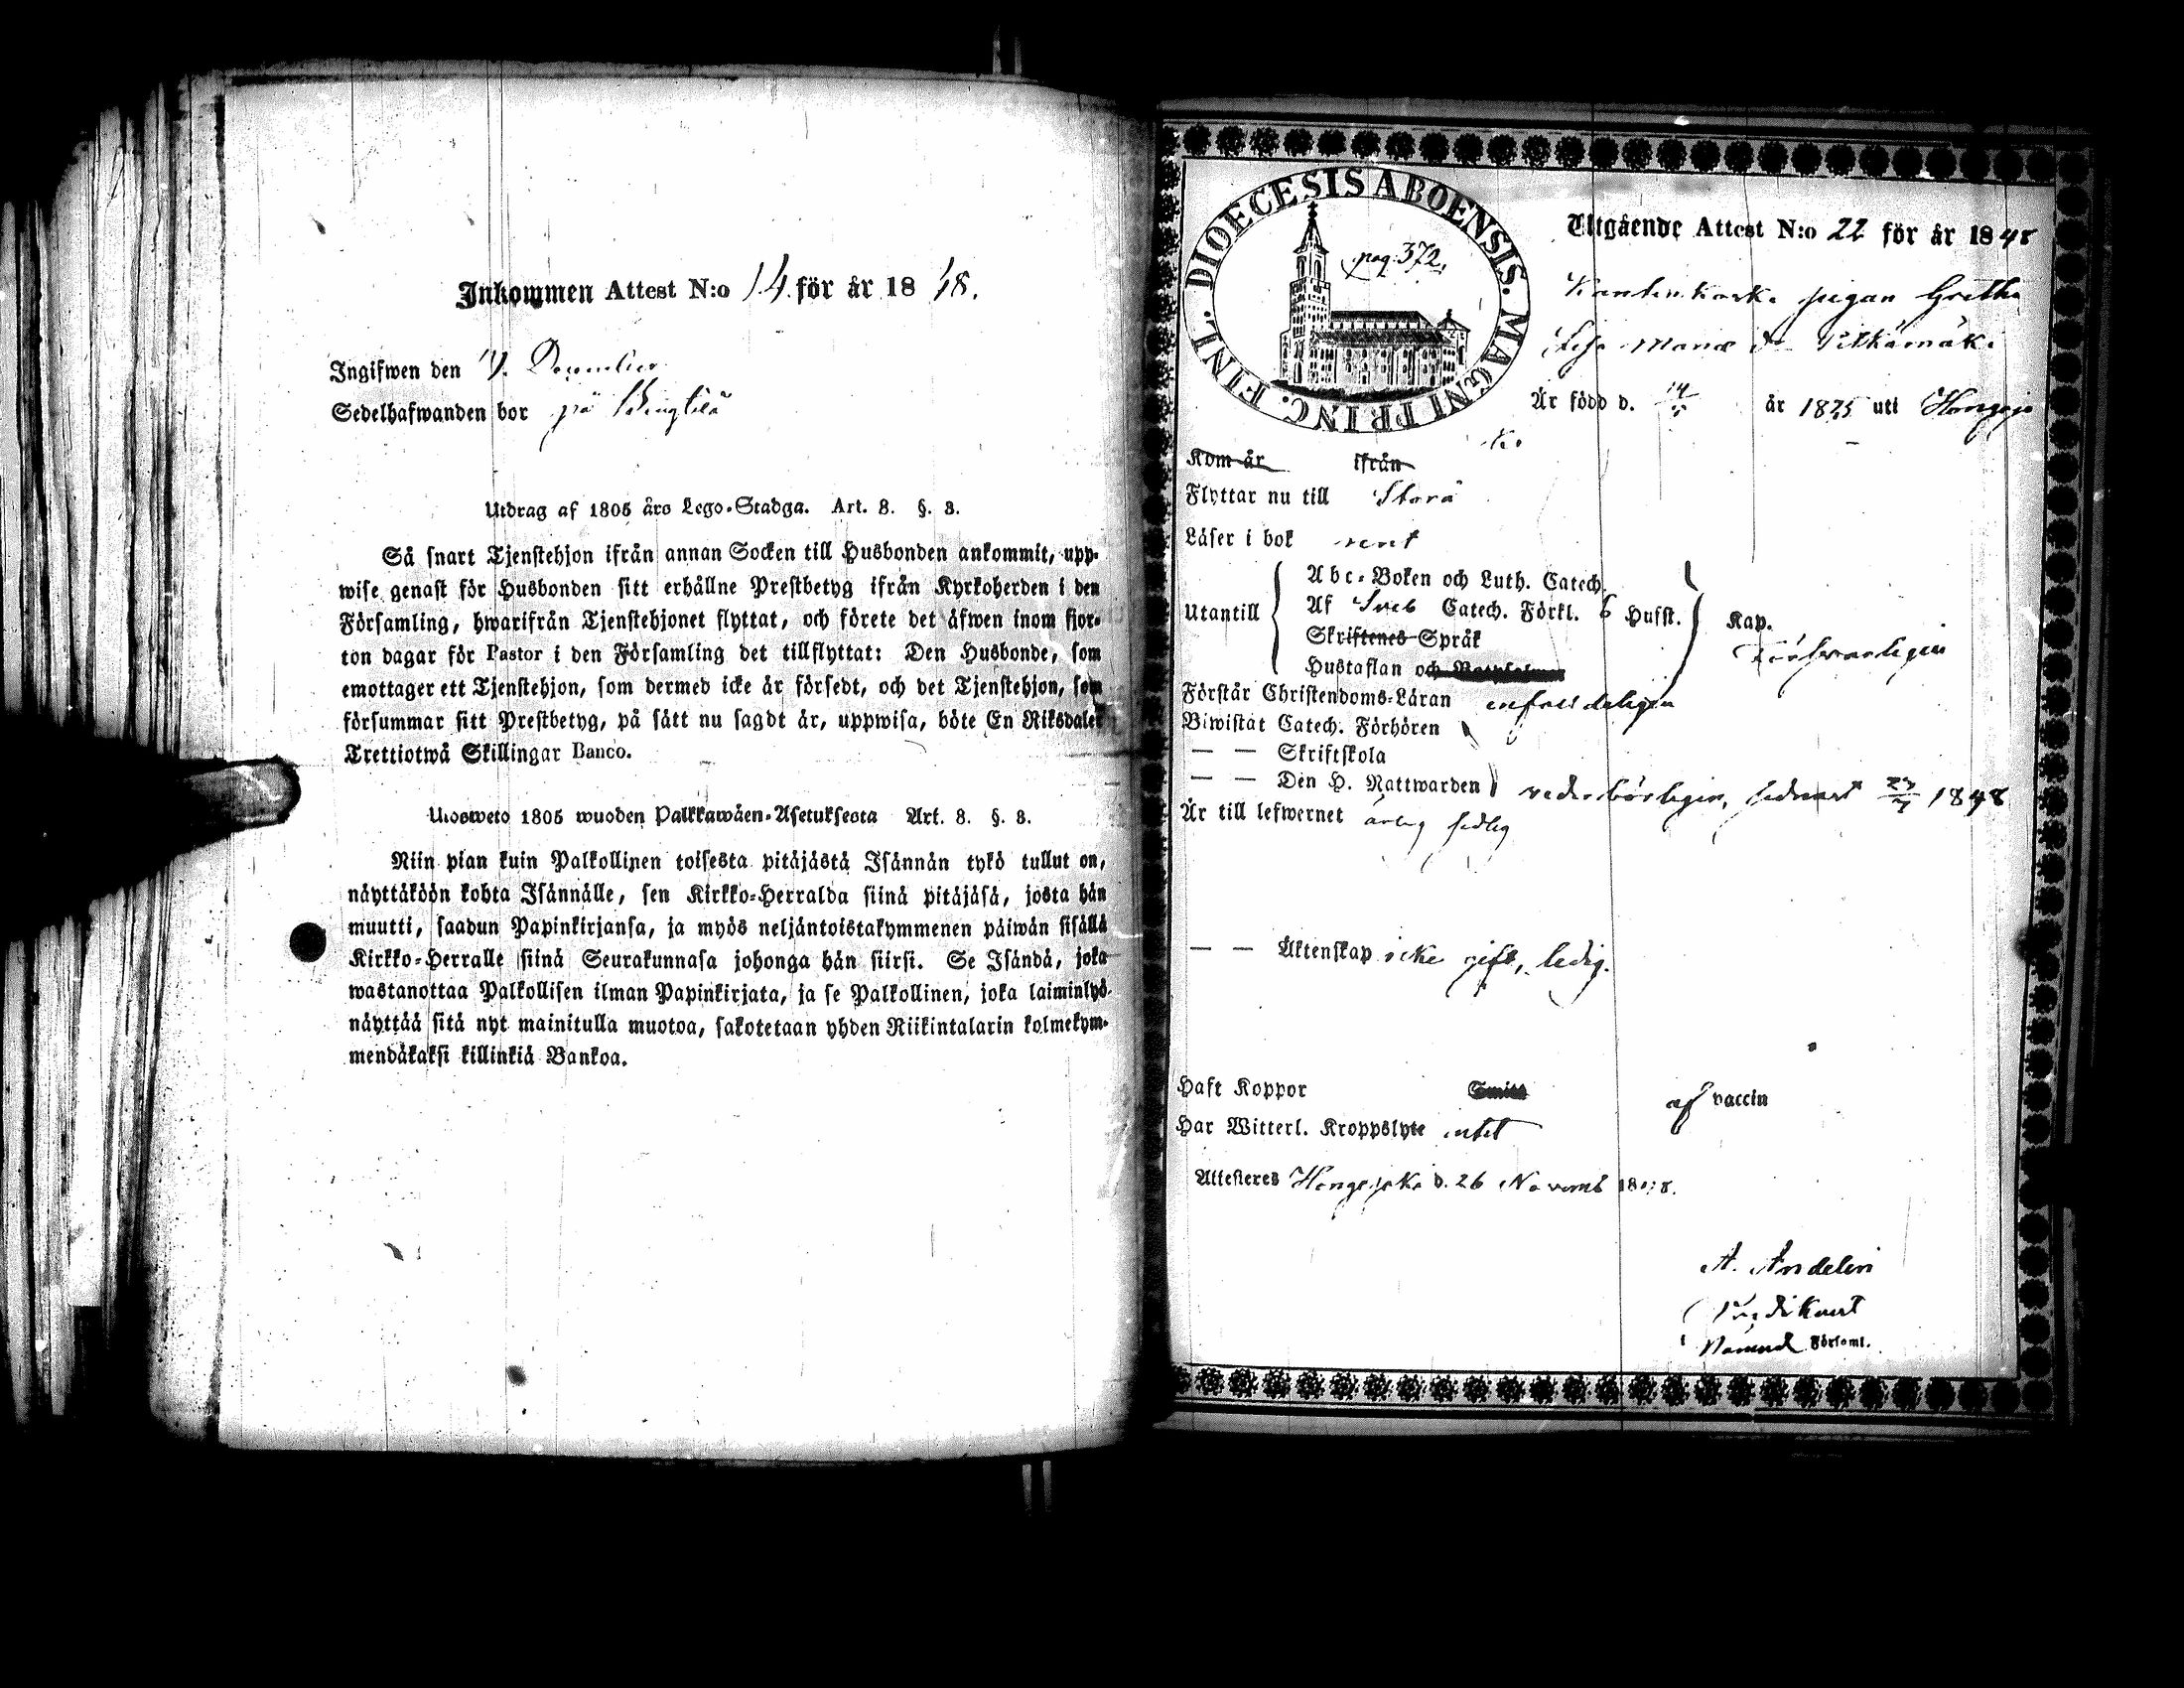 Inkommen Attest N:o 14 för år 1848.
Ingifwen den
Sedelhafwanden bor på
Utdrag af 1805 års Lego-Stadga. Art. 8. §. 8.
Så snart Tjenstehjon ifrån annan Socken till Husbonden ankommit, upp-
wise genast för Husbonden sitt erhållne Prestbetyg ifrån Kyrkoherden i den
Församling, hwarifrån Tjenstehjonet flyttat, och förete det äfwen inom fjor-
ton dagar för Pastor i den Församling det tillflyttat: Den Husbonde, som
emottager ett Tjenstehjon, som dermed icke är försedt, och det Tjenstehjon, som
försummar sitt Prestbetyg, på sätt nu sagdt är, uppwisa, böte En Riksdaler
Trettiotwå Skillingar Banco.
Ulosweto 1805 wuoden Palkkawäen-Asetuksesta Art. 8. §. 8.
Niin pian kuin Palkollinen toisesta pitäjästä Isännän tykö tullut on,
näyttäköön kohta Isännälle, sen Kirkko-Herralda siinä pitäjäsä, josta hän
muutti, saadun Papinkirjansa, ja myös neljäntoistakymmenen päiwän sisällä
Kirkko-Herralle siinä Seurakunnasa johonga hän siirsi. Se Isändä, joka
wastanottaa Palkollisen ilman Papinkirjata, ja se Palkollinen, joka laiminlyö
näyttää sitä nyt mainitulla muotoa, sakotetaan yhden Riikintalarin kolmekym-
mendäkaksi killinkiä Bankoa.
DIOECESIS ABOENSIS. MAGNI PRINC. FINL.
pag. 372.
Utgående Attest N:o 22 för år 1848
pigan Gretha
Är född d. år 1825 uti Hongojo
ki
Kom år ifrån
Flyttar nu till Storå
Läser i bok rent
Utantill
Abc-Boken och Luth. Catech.
Af Sveb Catech. Förkl. 6 Hufst.
Skriftenes Språk
Hustaflan och
Kap.
försvarligen
Förstår Christendoms-Läran enfaldeligen
Biwistat Catech. Förhören
— — Skriftskola
— — Den H. Nattwarden vederbörligen, sednast 1848
Är till lefwernet ärlig sedlig
— — Äktenskap icke gift, ledig.
Haft Koppor Smitt af vaccin
Har Witterl. Kroppslyte intet
Attesteres Hongojoki d. 26 Novemb 1848.
A. Andelin
Predikant
Församl.